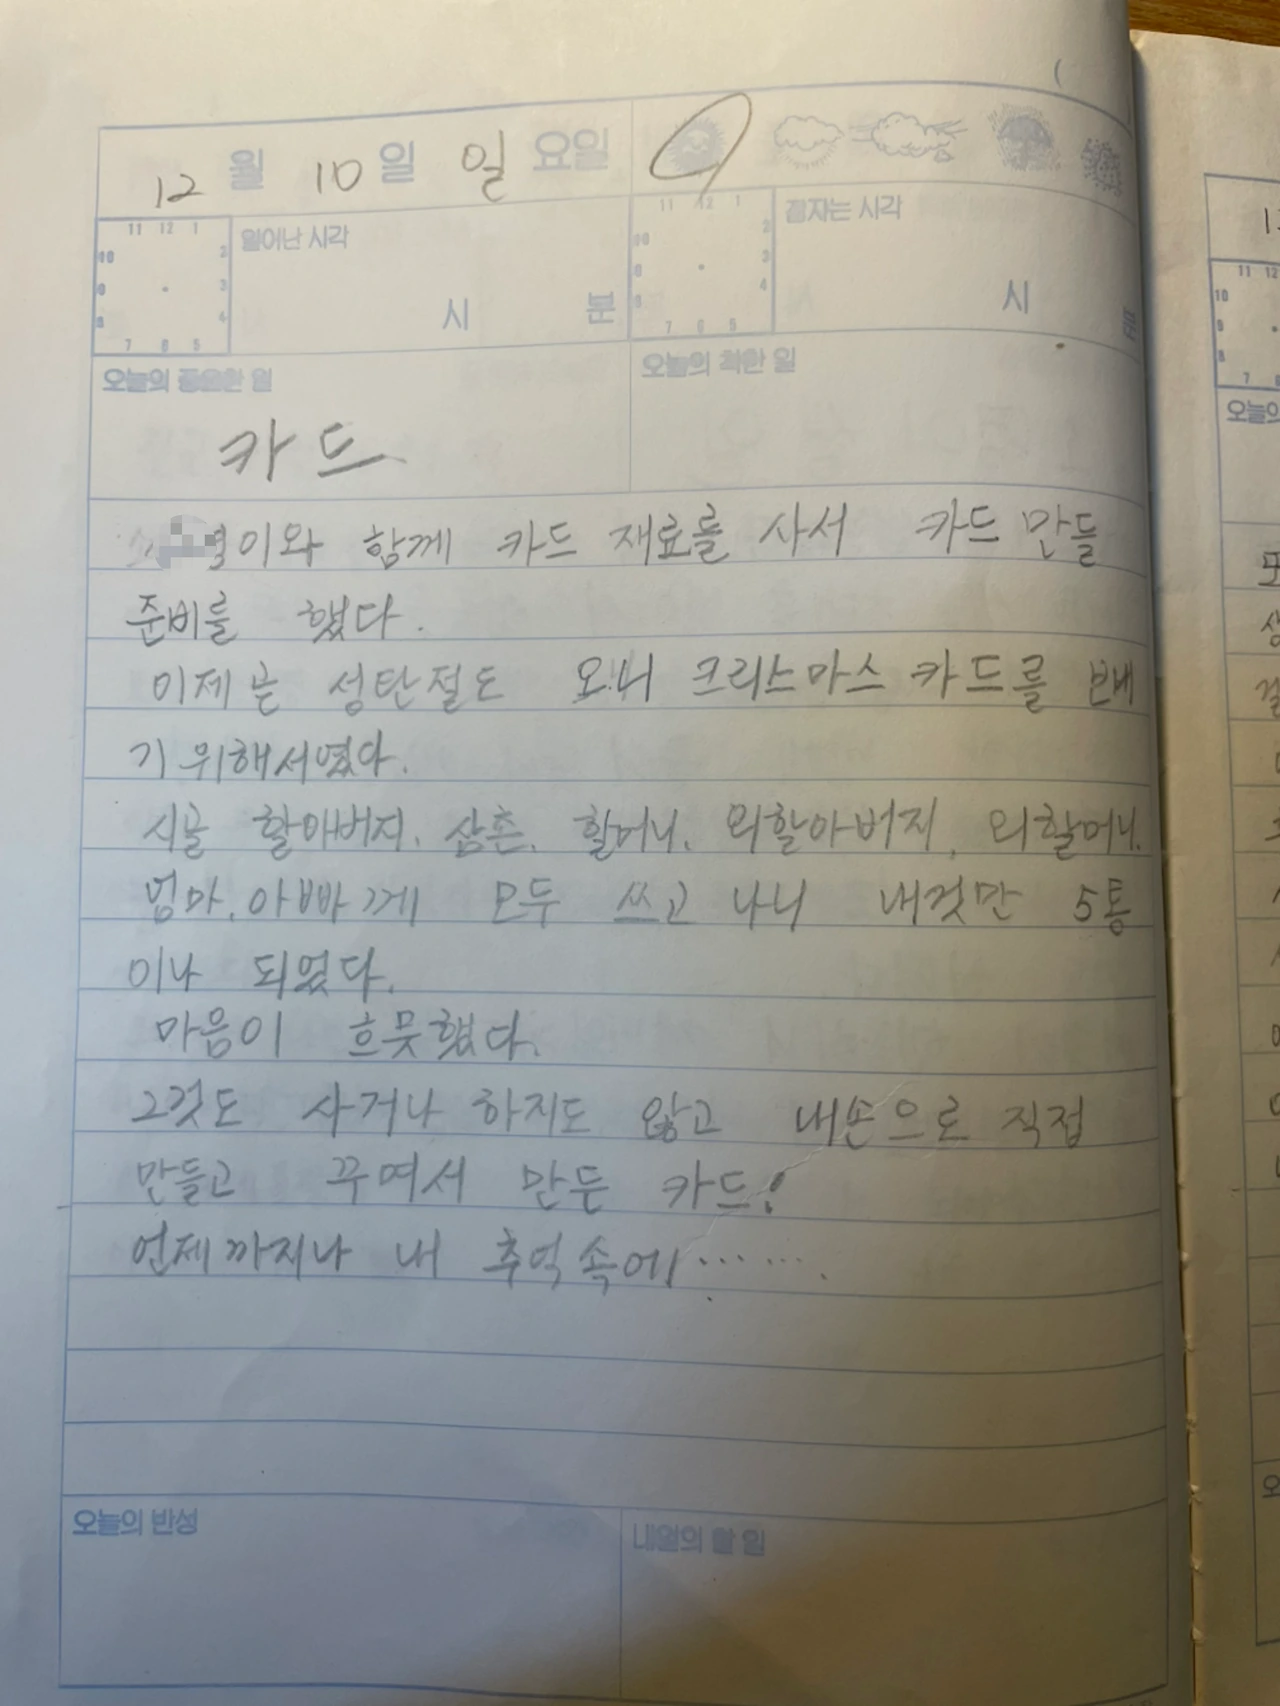 12 월 10 일 일 요일
11 12 1 2 3 4 5 6 7 8 9 10
일어난 시각
시 분
11 12 1 2 3 4 5 6 7 8 9 10
잠자는 시각
시 분
오늘의 중요한 일
카드
오늘의 착한 일
이와 함께 카드 재료를 사서 카드 만들
준비를 했다.
이제 곧 성탄절도 오니 크리스마스 카드를 보내
기 위해서였다.
시골 할아버지. 삼촌. 할머니. 외할아버지, 외할머니.
엄마. 아빠께 모두 쓰고 나니 내것만 5통
이나 되었다.
마음이 흐뭇했다.
그것도 사거나 하지도 않고 내손으로 직접
만들고 꾸며서 만든 카드!
언제까지나 내 추억속에…….
오늘의 반성
내일의 할 일
11 12
10
9
8
7